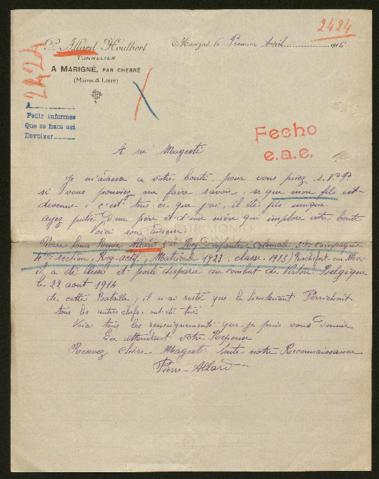 2424
P. Allard Houlbert
TONNELIER
A MARIGNÉ, PAR CHERRÉ
(Maine-&-Loire)
Marigné le Premier Avril 1916
2424
A
Pedir informes
Que se haga así
Devolver
Fecho
e.a.e.
A sa Majesté
Je m'adresse a votre bonté pour vous priez, s.v.p
si vous pouviez me faire savoir, se que mon fils est
devenue, c'est tous ce que j'ai, il été fils unique
ayez pitié d'un père et d'une mère qui implore votre bonté
Voici son
Pierre Louis Allard Reg Infanterie Coloniale Compagnie
4me section, Reg-actif, Matricule 1923, classe 1913) Rochefort sur Mer
il a été blessé et porté disparue au combat de Belgique
le 22 août 1914
de cette Bataille, il n'ai resté que le Lieutenant
tous les autres chefs, ont été tué
Voici tous les renseignements que je puis vous donner
En attendant votre Reponse
Recevez chère Magesté toute notre Reconnaissance
Pierre Allard